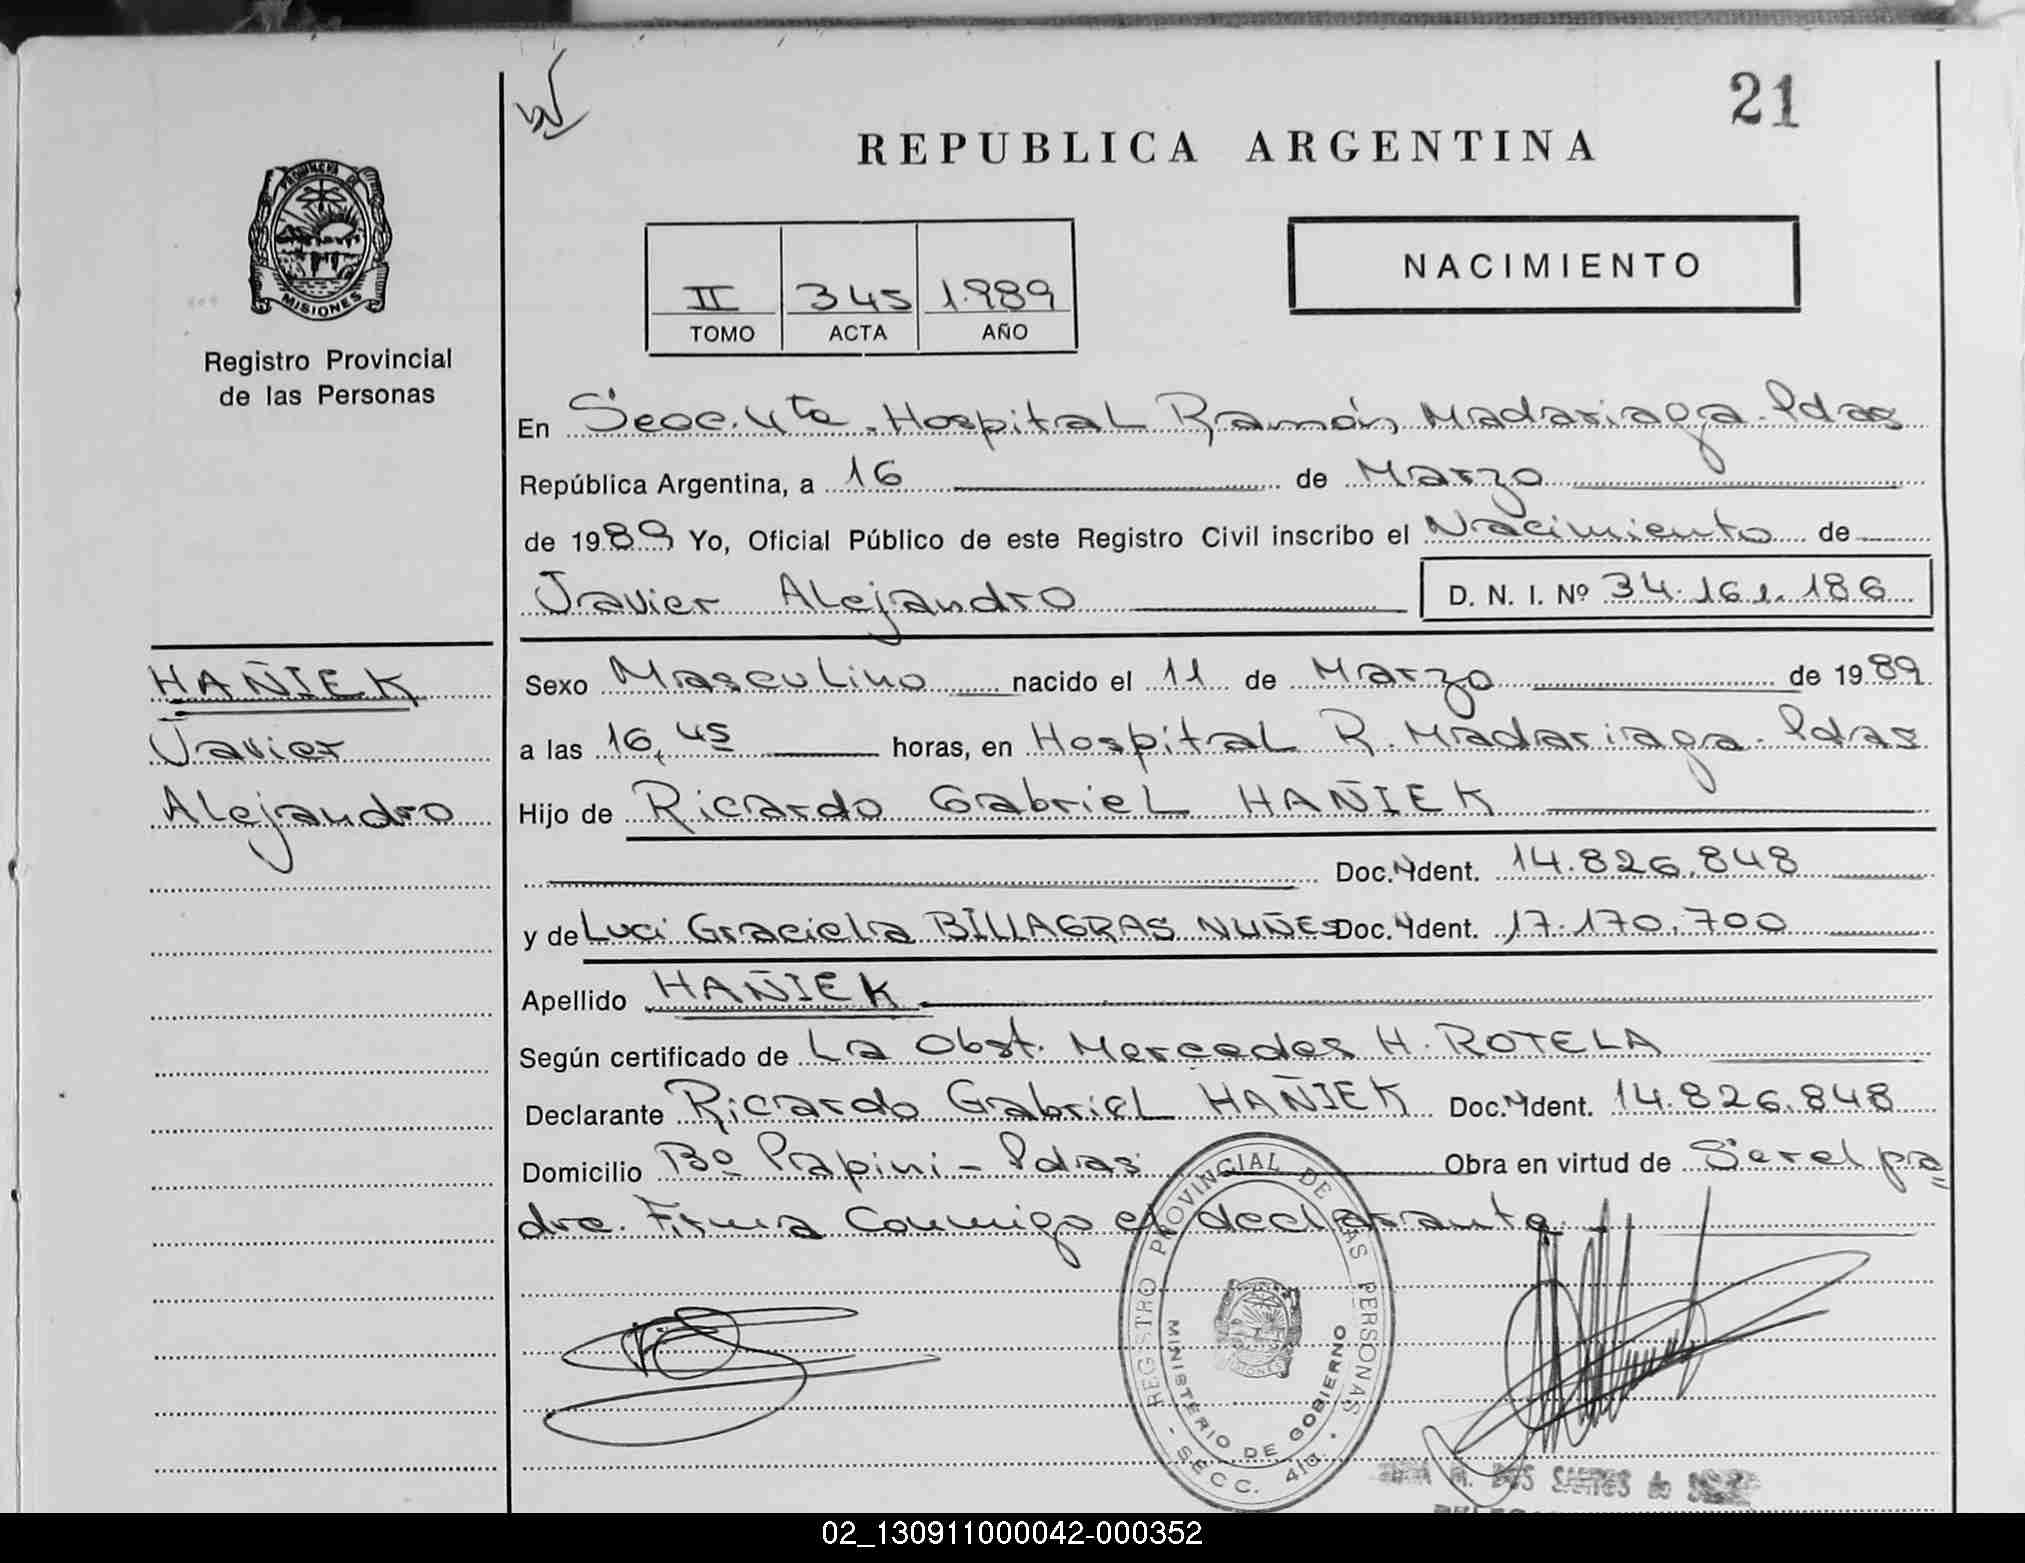 21
REPUBLICA ARGENTINA
PROVINCIA DE
MISIONES
Registro Provincial
de las Personas
NACIMIENTO
II 345 1.989
TOMO ACTA AÑO
En Secc. 4ta. Hospital Ramón Madariaga. Pdas
República Argentina, a 16 de Marzo
de 1989 Yo, Oficial Público de este Registro Civil inscribo el Nacimiento de
Javier Alejandro D. N. I. Nº 34.161.186
HAÑIEK
Javier
Alejandro
Sexo Masculino nacido el 11 de Marzo de 1989
a las 16,45 horas, en Hospital R. Madariaga. Pdas
Hijo de Ricardo Gabriel HAÑIEK
Doc. Ident. 14.826.848
y de Luci Graciela BILLAGRAS NUÑES Doc. Ident. 17.170.700
Apellido HAÑIEK
Según certificado de La Obst. Mercedes H. ROTELA
Declarante Ricardo Gabriel HAÑIEK Doc. Ident. 14.826.848
Domicilio Bº Papini - Pdas Obra en virtud de Ser el pa=
dre. Firma Conmigo el declarante.
REGISTRO PROVINCIAL DE LAS PERSONAS
MINISTERIO DE GOBIERNO
- SECC. 4ta. -
DOS SANTOS de
02_130911000042-000352